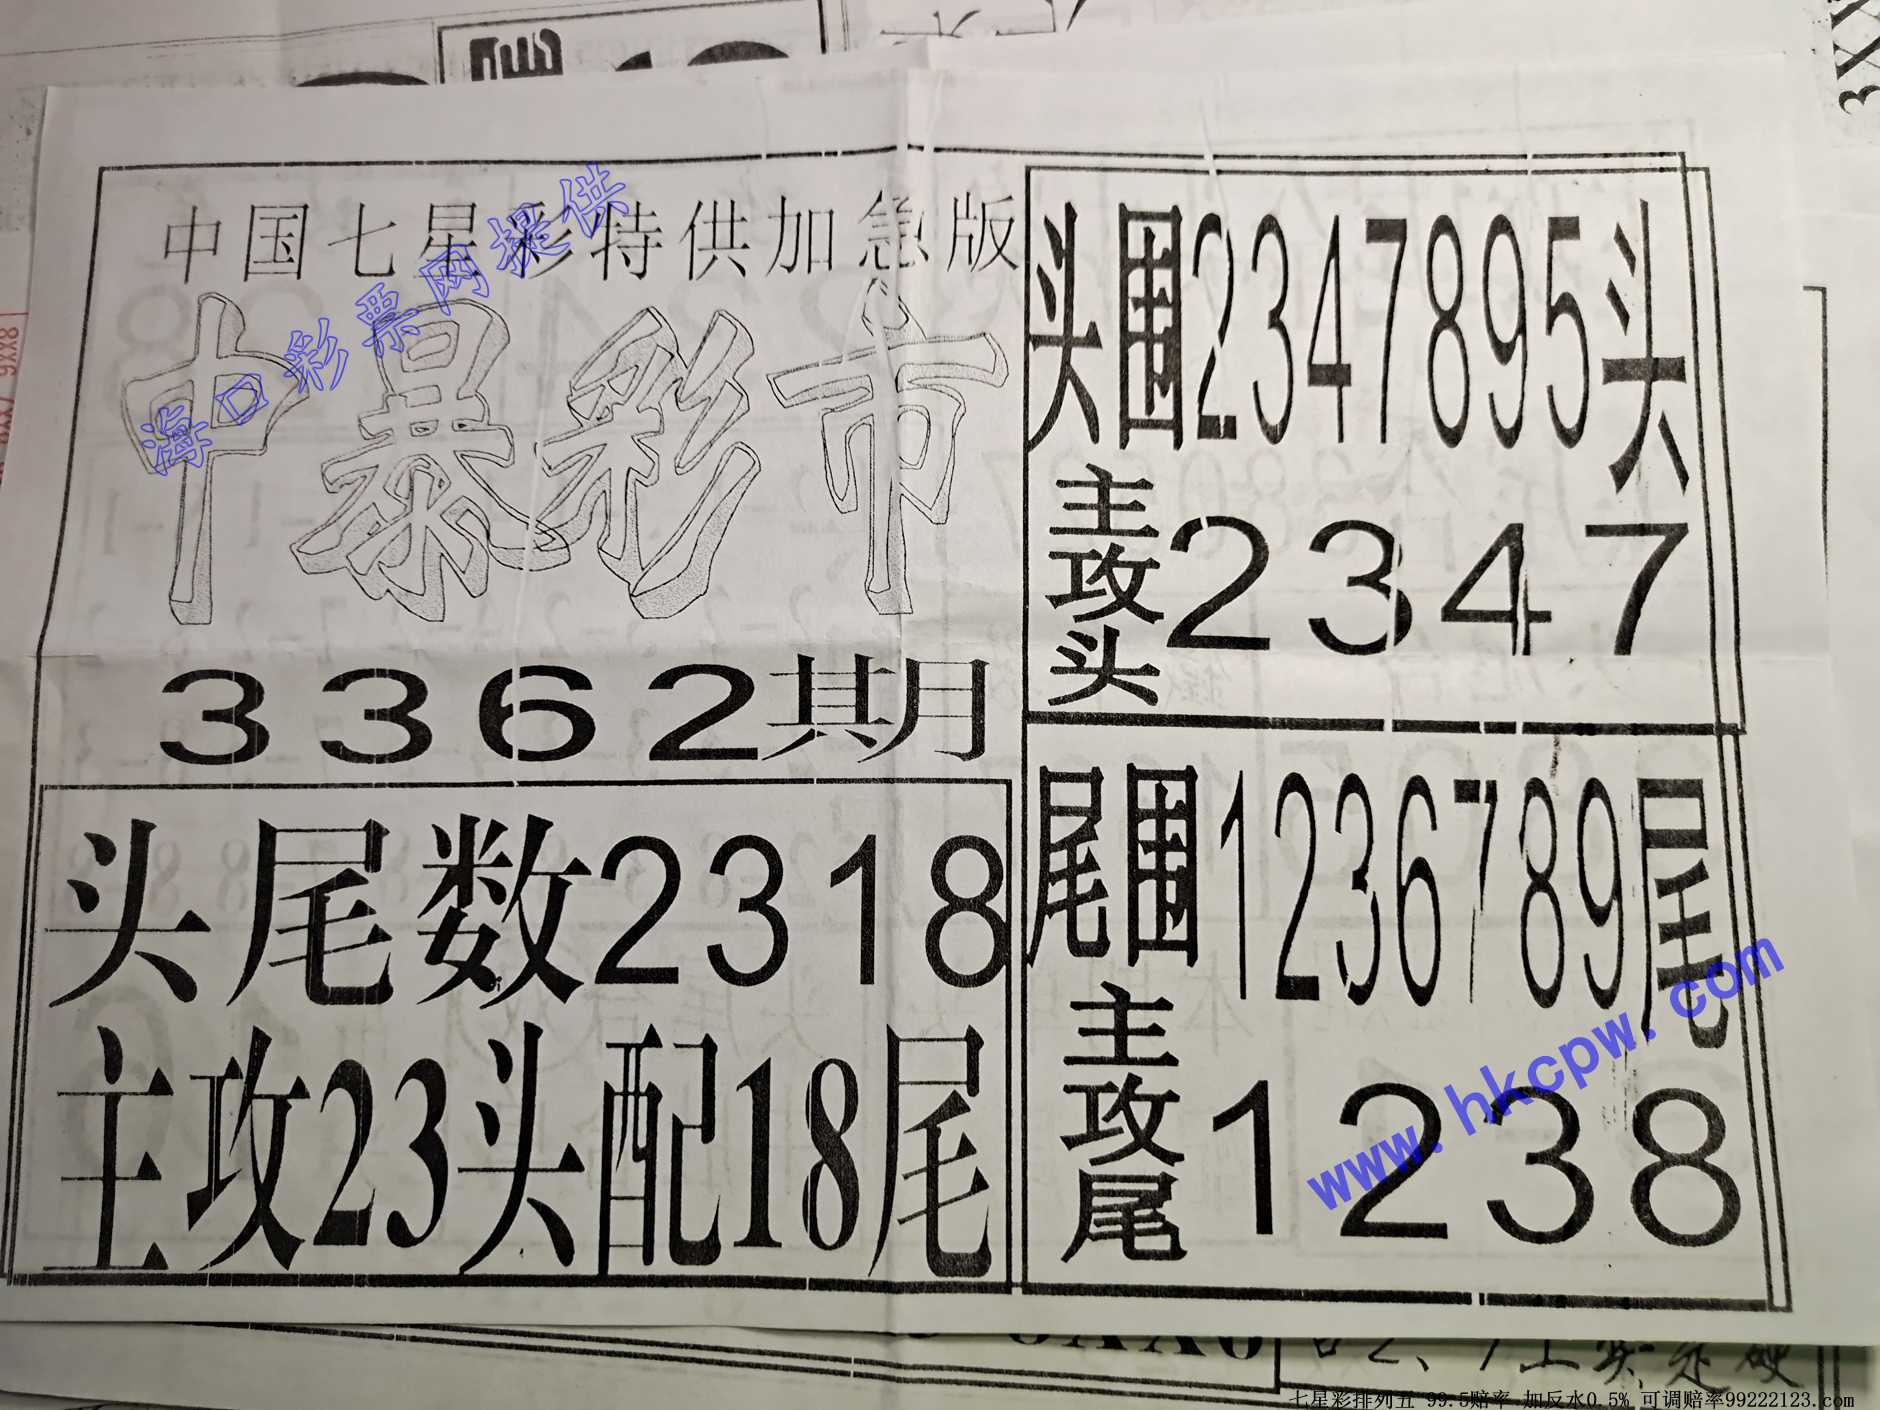 中国七星彩特供加急版
中暴彩市
3362期
头尾数2318
主攻23头配18尾
头围2347895头
主攻头2347
尾围1236789尾
主攻尾1238
海口彩票网提供
www.hkcpw.com
七星彩排列五 99.5赔率 加反水0.5% 可调赔率99222123.com